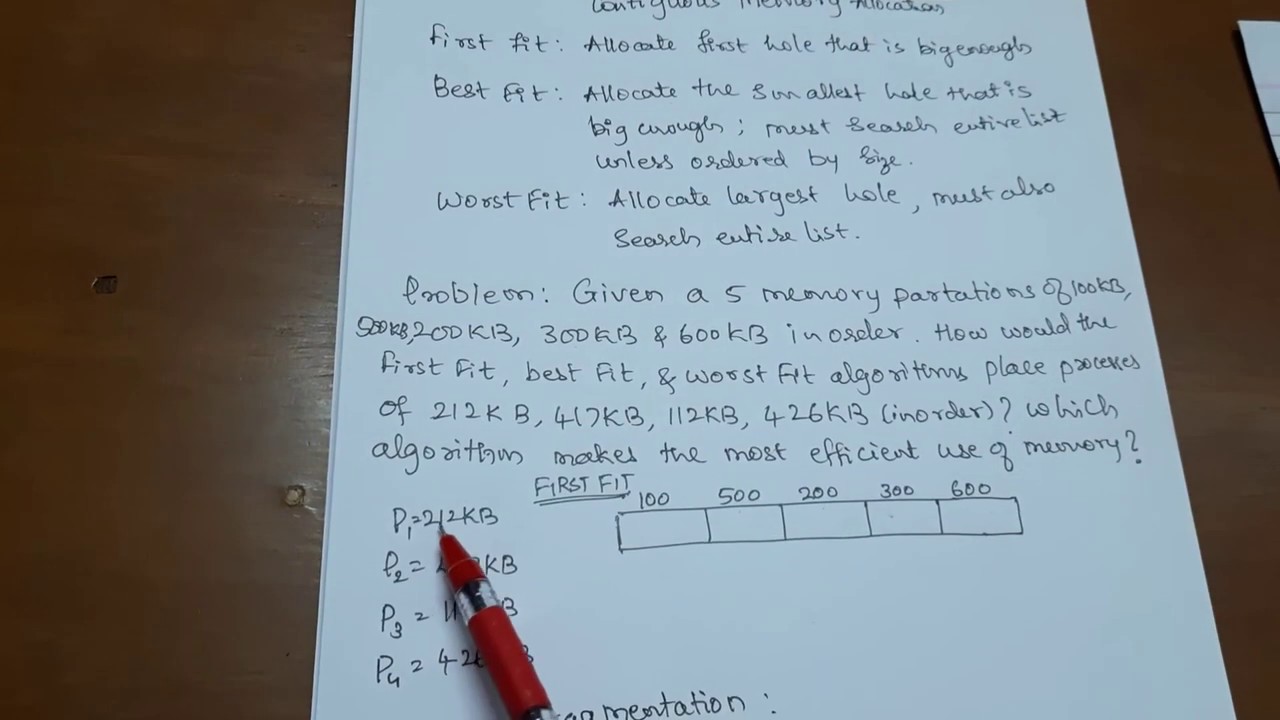 Contiguous Memory Allocation
First fit: Allocate first hole that is big enough
Best Fit: Allocate the smallest hole that is
big enough; must search entire list
unless ordered by size.
Worst Fit: Allocate largest hole, must also
Search entire list.
Problem: Given a 5 memory partations of 100KB,
500KB, 200KB, 300KB & 600KB in order. How would the
First Fit, best Fit, & worst Fit algorithms place processes
of 212KB, 417KB, 112KB, 426KB (in order)? Which
algorithm makes the most efficient use of memory?
FIRST FIT
100 500 200 300 600
P1=212KB
P2= KB
P3= B
P4= 42